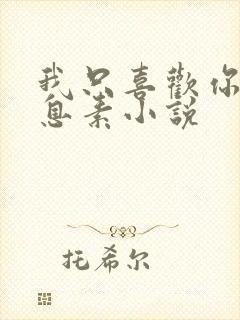 我只喜歡你
息素小説
托希尔